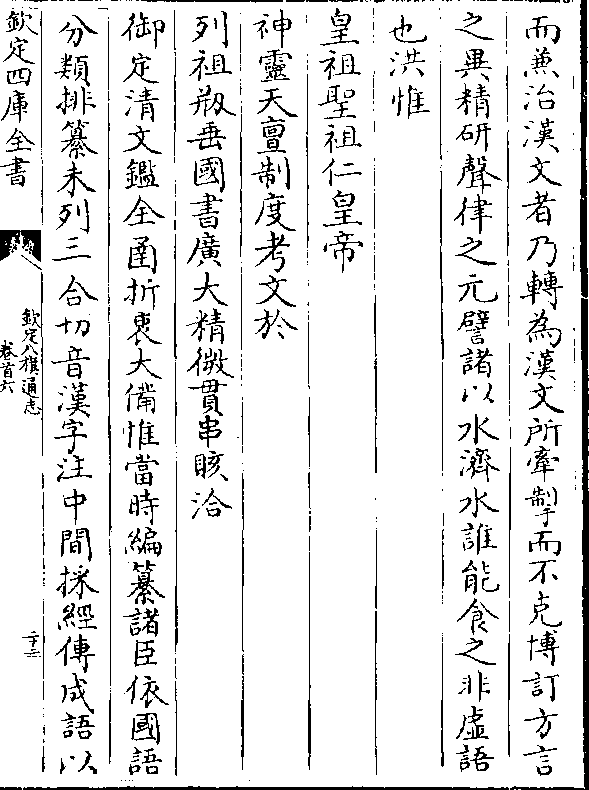 而兼治漢文者乃轉為漢文所牽掣而不克博訂方言
之異精研聲律之元譬諸以水濟水誰能食之非虛語
也洪惟
皇祖聖祖仁皇帝
神靈天亶制度考文於
列祖刱垂國書廣大精微貫串賅洽
御定清文鑑全函折衷大備惟當時編纂諸臣依國語
分類排纂未列三合切音漢字注中間採經傳成語以
欽定四庫全書
欽定八旗通志
卷首六
二十三